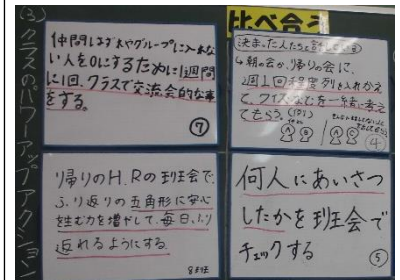 (3)クラスのパワーアップアクション
比べ合う
仲間はずれやグループに入れな
い人を0にするために1週間
に1回、クラスで交流会的な事
をする。
⑦
決まった人たちと
→朝の会か、帰りの会に、
週1回程度列を入れかえ
て、クイズなどを一緒に考え
てもらう。
④
帰りのH.Rの班会で、
ふり返りの五角形に安心
を生む力を増やして、毎日ふり
返れるようにする。
8班
何人にあいさつ
したかを班会で
チェックする
⑤